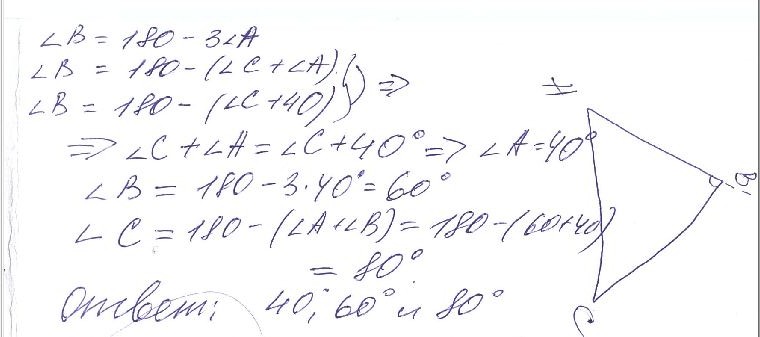 ∠B = 180 - 3∠A
∠B = 180 - (∠C + ∠A)
∠B = 180 - (∠C + 40) } =>
=> ∠C + ∠A = ∠C + 40° => ∠A = 40°
∠B = 180 - 3·40° = 60°
∠C = 180 - (∠A + ∠B) = 180 - (60 + 40)
= 80°
Ответ: 40°, 60° и 80°
A
B
C